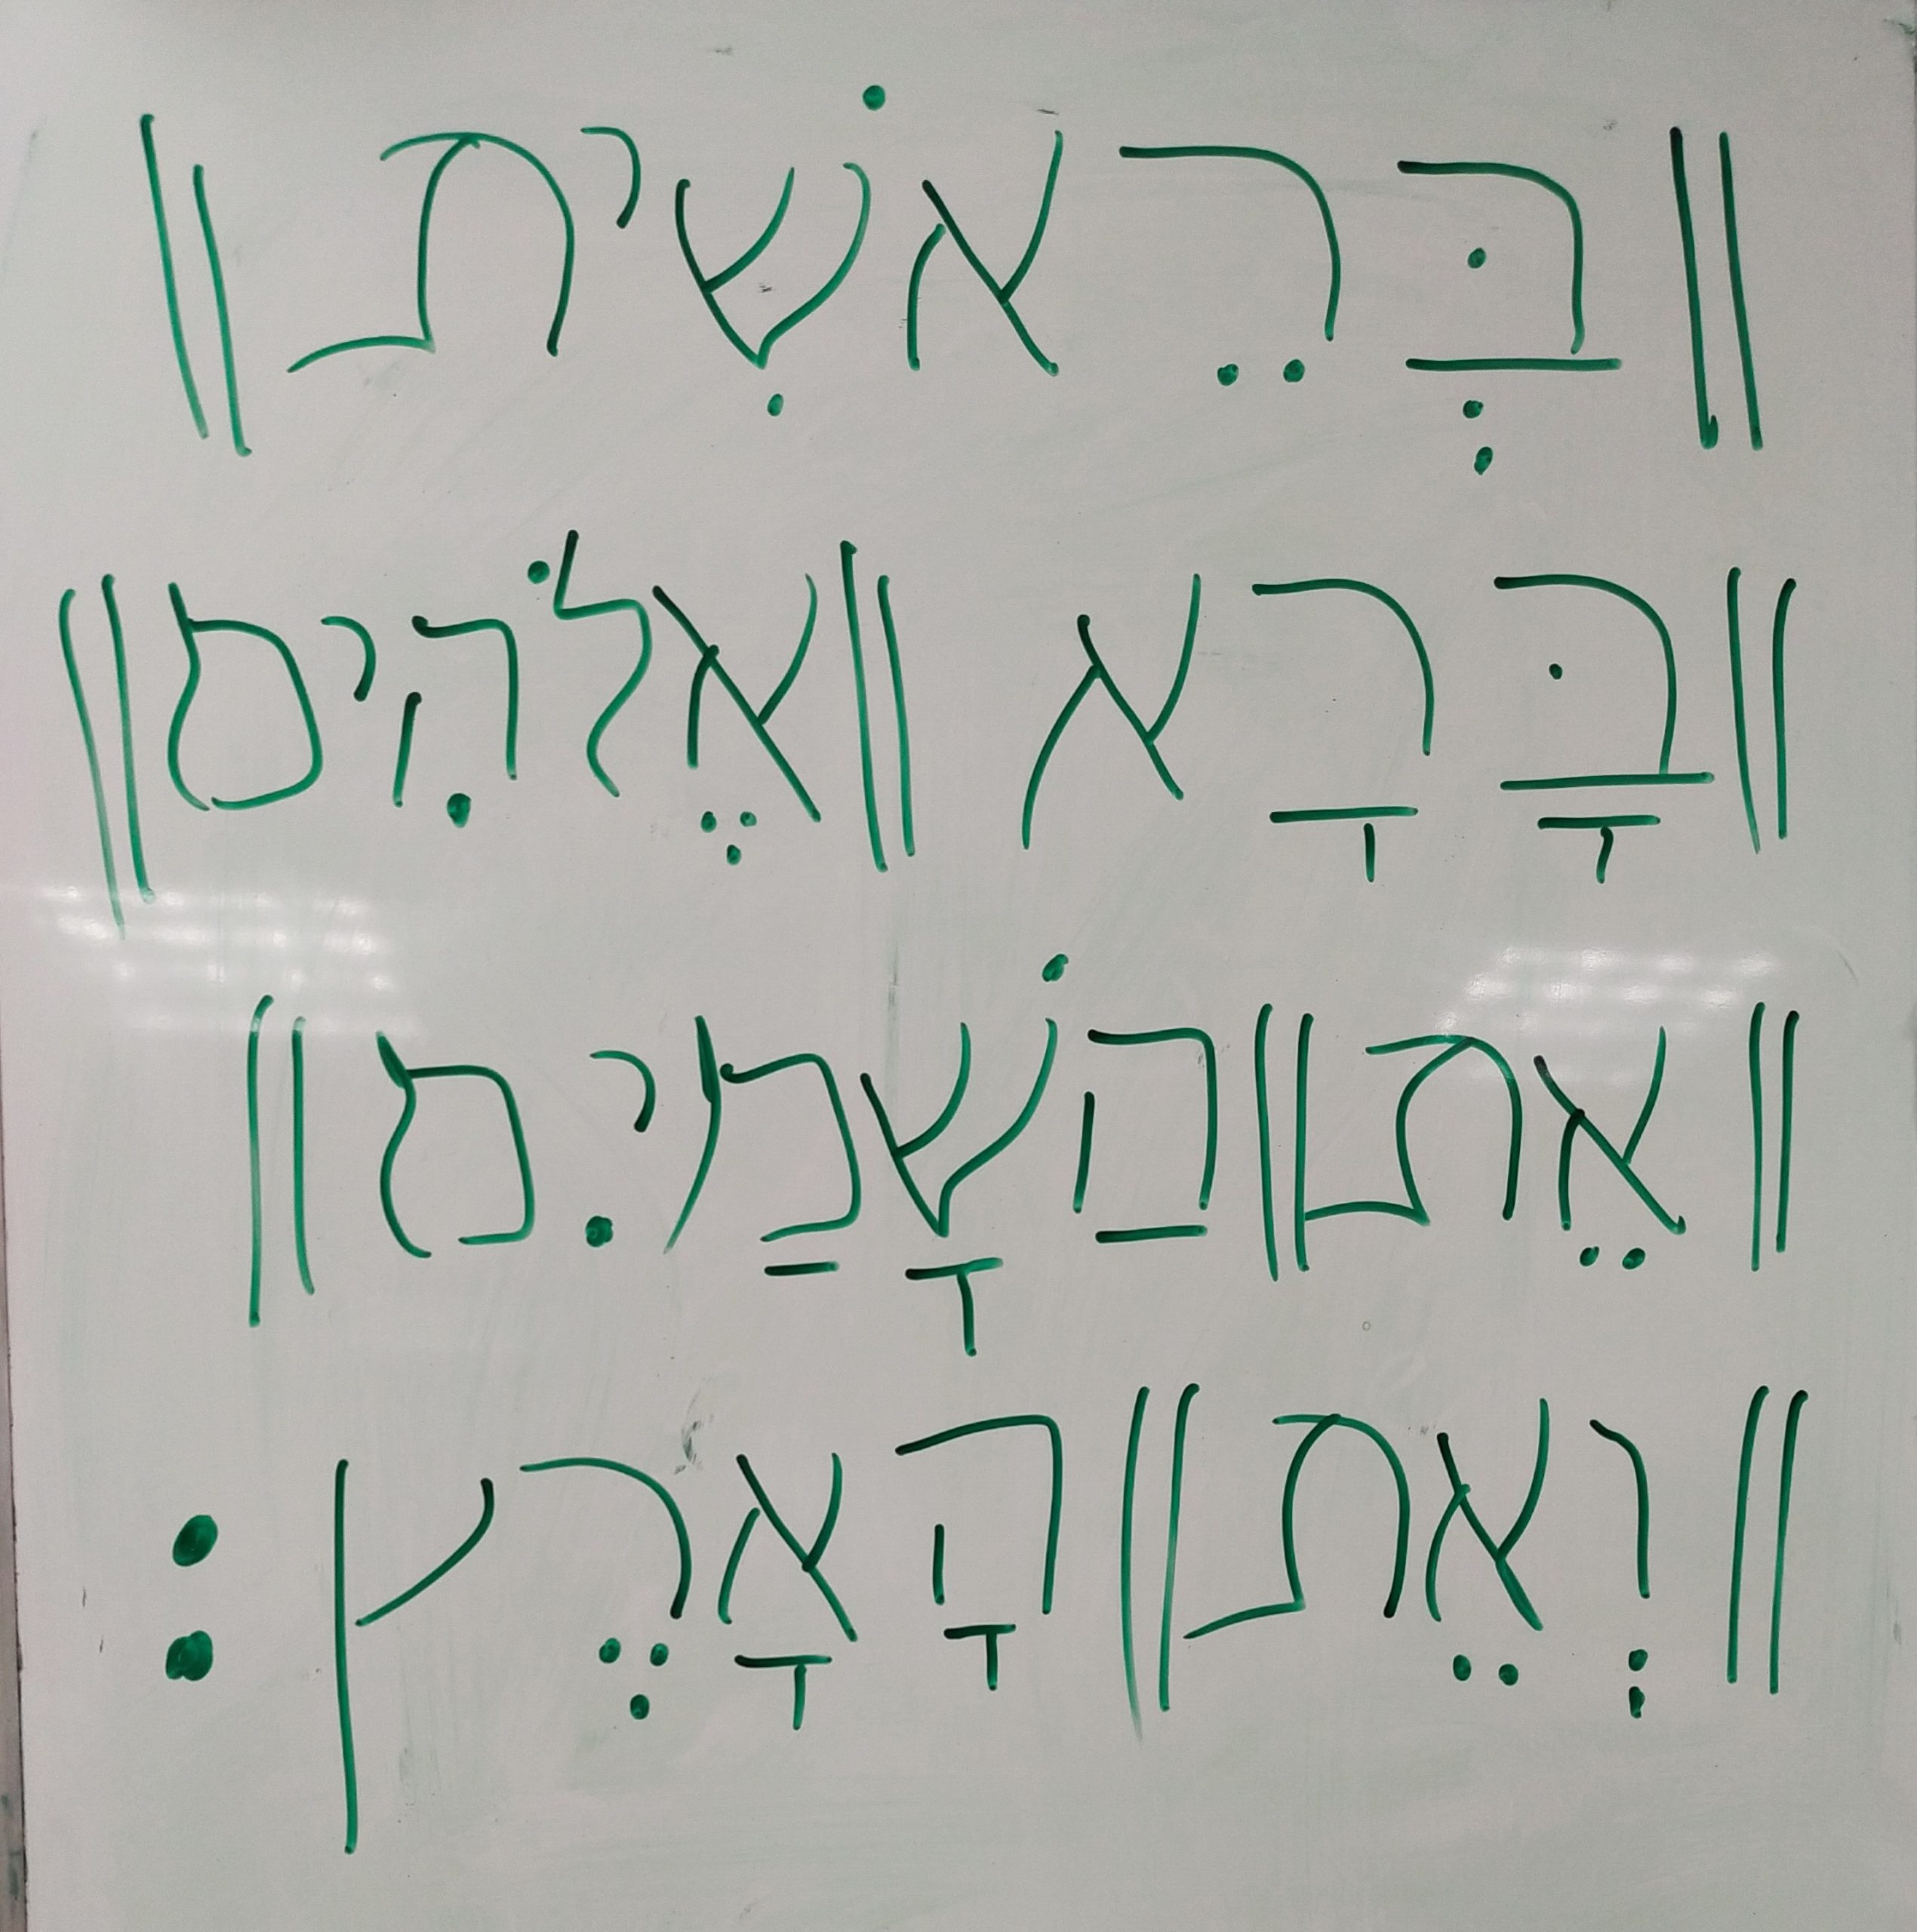 ‖ בְּרֵאשִׁית ‖
‖ בָּרָא ‖ אֱלֹהִים ‖
‖ אֵת ‖ הַשָׁמַיִם ‖
‖ וְאֵת ‖ הָאָרֶץ :